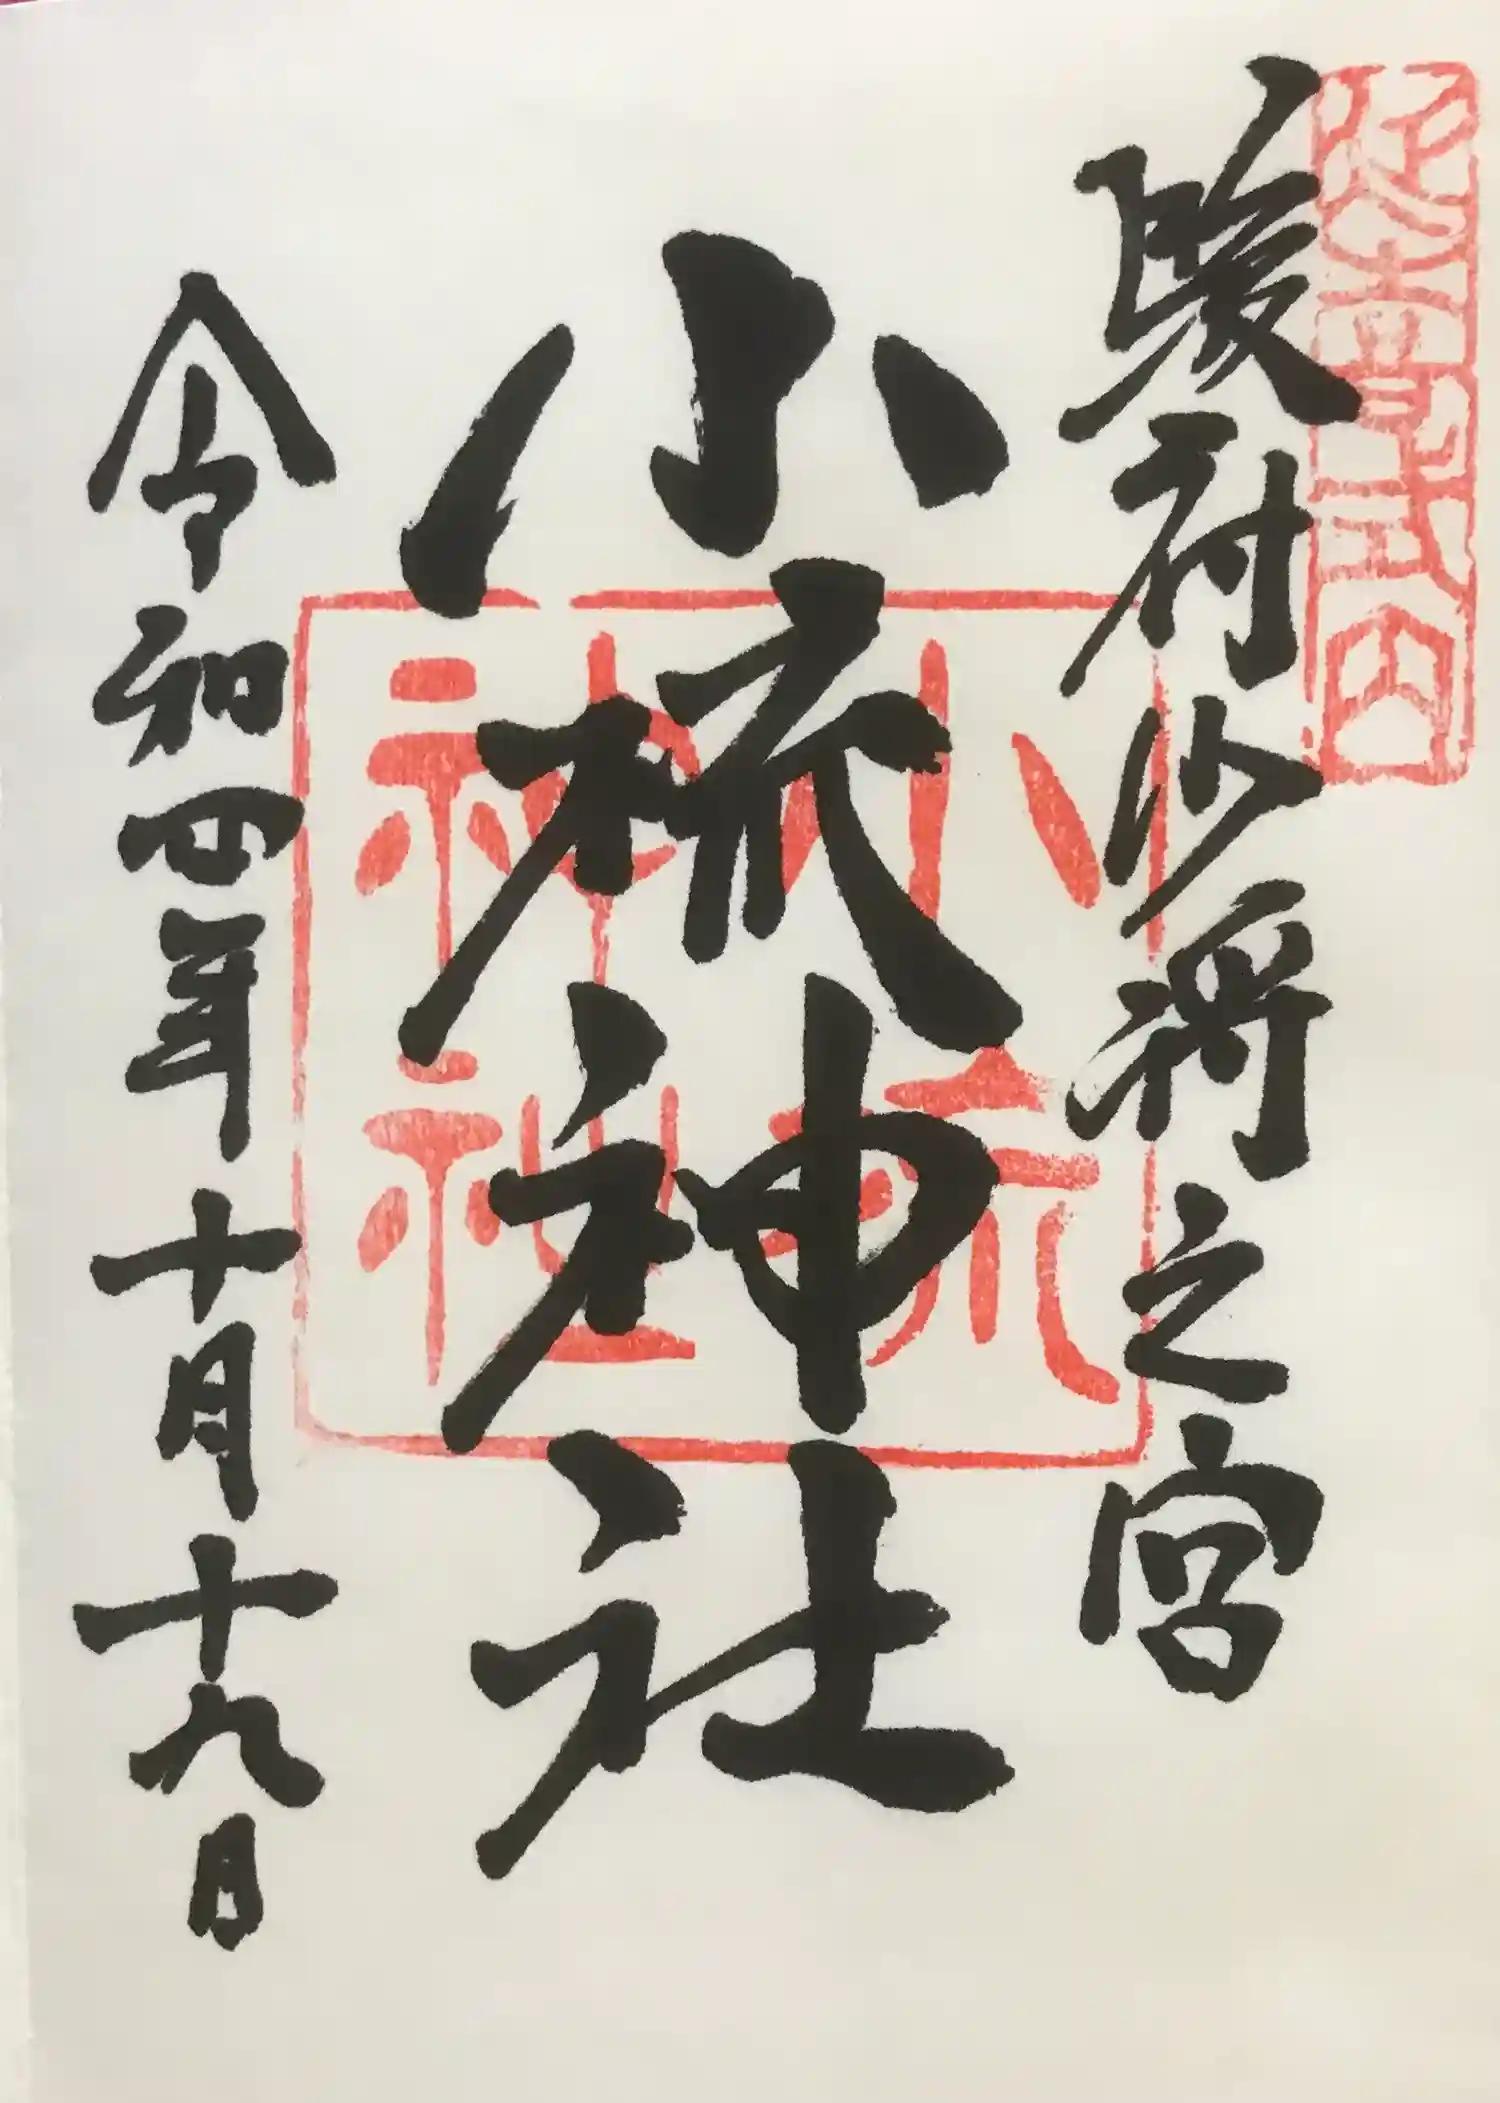 延喜式内
駿府少将之宮
小梳神社
小梳
神社
令和四年十月十九日